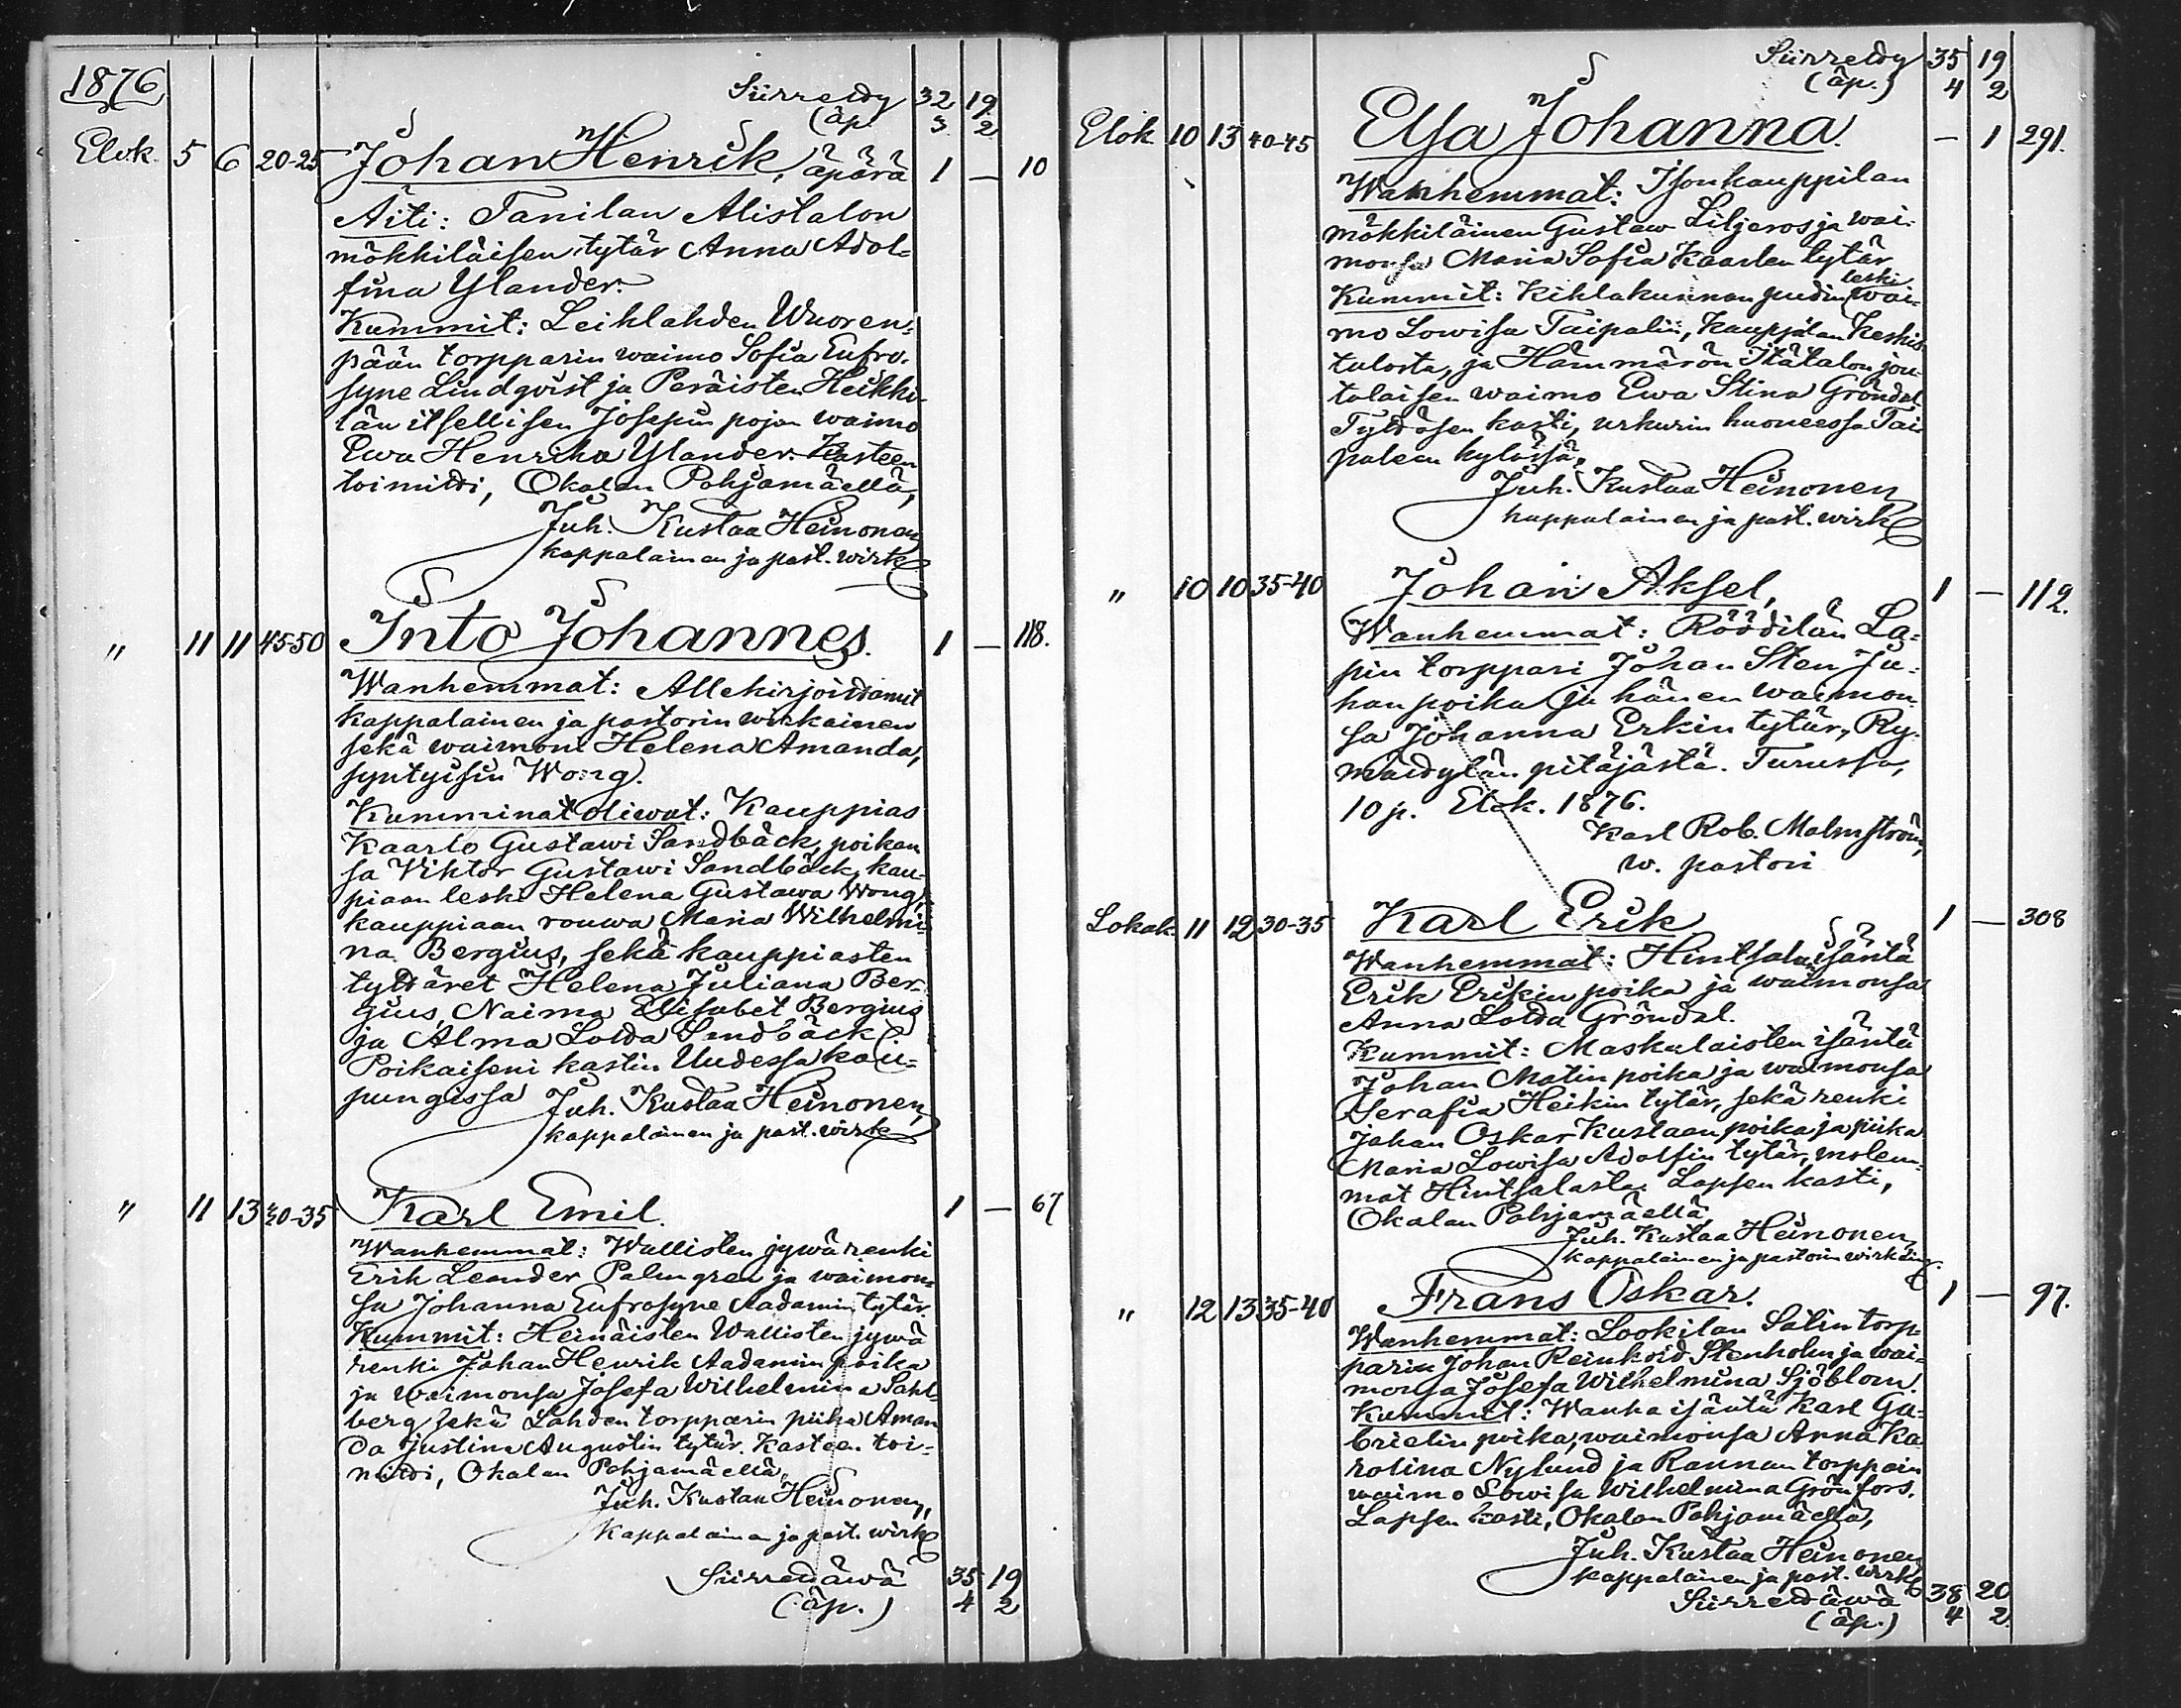 1876
Siirretty 32 19
(äp. 3 2
Elok. 5 6 20-25 Johan Henrik, äpärä 1 — 10
Äiti: Tanilan Alistalon
mökkiläisen tytär Anna Adol-
fina Ylander.
Kummit: Leihlahden Wuoren-
pään torpparin waimo Sofia Eufro-
syne Lindqvist ja Peräisten Heikki-
län itsellisen Josepin pojan waimo
Ewa Henrika Ylander. Kasteen
toimitti, Okalan Pohjamäellä,
Juh. Kustaa Heinonen
kappalainen ja past. wirk
" 11 11 45-50 Into Johannes. 1 — 118.
Wanhemmat: Allekirjoittanut
kappalainen ja pastorin wirkainen
sekä waimoni Helena Amanda,
syntyisin Wong.
Kumminat oliwat: Kauppias
Kaarlo Gustawi Sandbäck, poikan
sa Viktor Gustawi Sandbäck, kau-
piaan leski Helena Gustawa Wong,
kauppiaan rouwa Maria Wilhelmi-
na Bergius, sekä kauppiasten
tyttäret Helena Juliana Ber-
gius, Naima Elisabet Bergius
ja Alma Lotta Sandbäck.
Poikaiseni kastin Uudessa kau-
pungissa Juh. Kustaa Heinonen,
kappalainen ja past. wirk
" 11 13 30-35 Karl Emil. 1 — 67
Wanhemmat: Wallisten jywä renki
Erik Leander Palmgren ja waimon-
sa Johanna Eufrosyne Aadamin tytär.
Kummit: Heinäisten Wallisten jywä
renki Johan Henrik Aadamin poika
ja waimonsa Josefa Wilhelmina Sahl-
berg sekä Lahden torpparin piika Aman
da Justina Augustin tytär. Kasteen toi-
mitti, Okalan Pohjamäellä,
Juh. Kustaa Heinonen,
Kappalainen ja past. wirk
Siirrettäwä 35 19
(äp.) 4 2
Siirretty 35 19
(äp.) 4 2
Elok 10 13 40-45 Elsa Johanna. — 1 291.
Wanhemmat: Isonkauppilan
mökkiläinen Gustaw Liljeros ja wai-
monsa Maria Sofia Kaarlen tytär
leski
Kummit: Kihlakunnan wai-
mo Lowisa Taipalii, Kauppilan Keskis-
talosta, ja Hämmärön Itätalon jou-
talaisen waimo Ewa Stina Gröndal
Tyttösen kasti, urkurin huoneessa Tai-
paleen kylässä,
Juh. Kustaa Heinonen
kappalainen ja past. wirk
" 10 10 35-40 Johan Aksel, 1 — 112.
Wanhemmat: Röödilän La-
pin torppari Johan Sten Ju-
han poika ja hänen waimon
sa Johanna Erkin tytär, Ry-
mättylän pitäjästä. Turussa,
10 p. Elok. 1876.
Karl Rob. Malmström,
w. pastori
Lokak. 11 12 30-35 Karl Erik 1 — 308
Wanhemmat: Hintsalan isäntä
Erik Erikin poika ja waimonsa
Anna Lotta Gröndal.
Kummit: Maskulaisten isäntä
Johan Matin poika ja waimonsa
Serafia Heikin tytär, sekä renki
Johan Oskar Kustaan poika ja piika
Maria Lowisa Adolfin tytär, molem-
mat Hintsalasta. Lapsen kasti,
Okalan Pohjamäellä,
Juh. Kustaa Heinonen,
kappalainen ja pastorin wirkain.
" 12 13 35-40 Frans Oskar. 1 — 97.
Wanhemmat: Lookilan Salin torp-
parin Johan Reinhold Stenholm ja wai-
monsa Josefa Wilhelmina Sjöblom.
Kummit: Wanha isäntä Karl Ga-
brielin poika, waimonsa Anna Ka-
rolina Nylund ja Rannan torpparin
waimo Lowisa Wilhelmina Grönfors.
Lapsen kasti, Okalan Pohjamäellä,
Juh. Kustaa Heinonen
kappalainen ja past. wirk
Siirrettäwä 38 20
(äp.) 4 2.